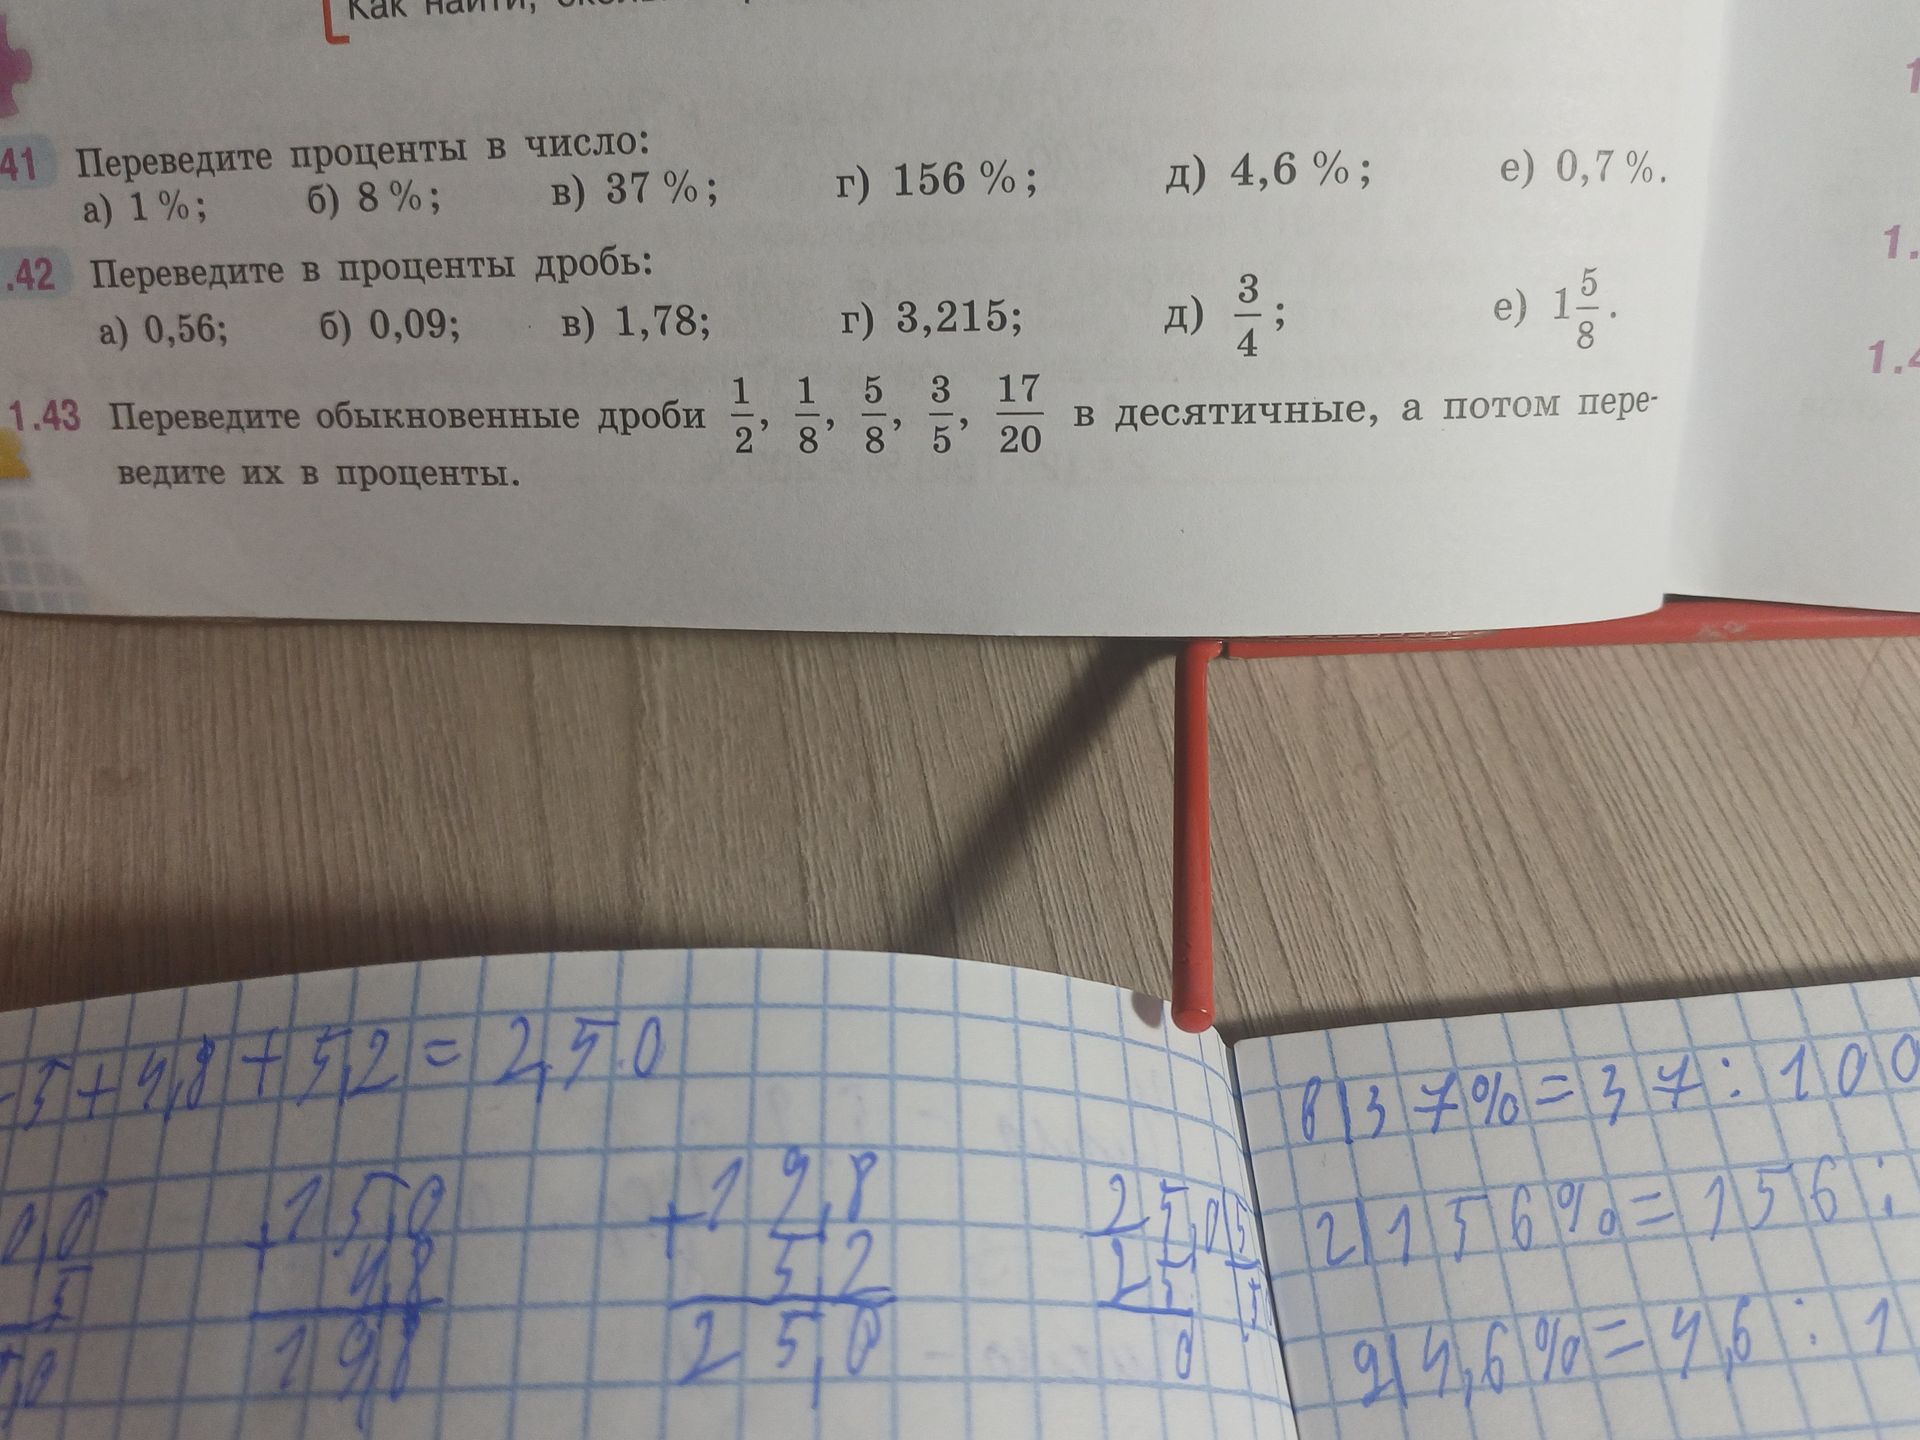 Как найти,
41 Переведите проценты в число:
а) 1 %; б) 8 %; в) 37 %; г) 156 %; д) 4,6 %; е) 0,7 %.
.42 Переведите в проценты дробь:
а) 0,56; б) 0,09; в) 1,78; г) 3,215; д) 3/4; е) 1 5/8.
1.43 Переведите обыкновенные дроби 1/2, 1/8, 5/8, 3/5, 17/20 в десятичные, а потом пере-
ведите их в проценты.
1
1.
1.4
5+4,8+5,2=2,5.0
0,0 +15,0 +19,8 25,0|5
5 4,8 5,2 25
,0 19,8 25,0 0
в)37%=37:100
г)156%=156:
д)4,6%=4,6:1